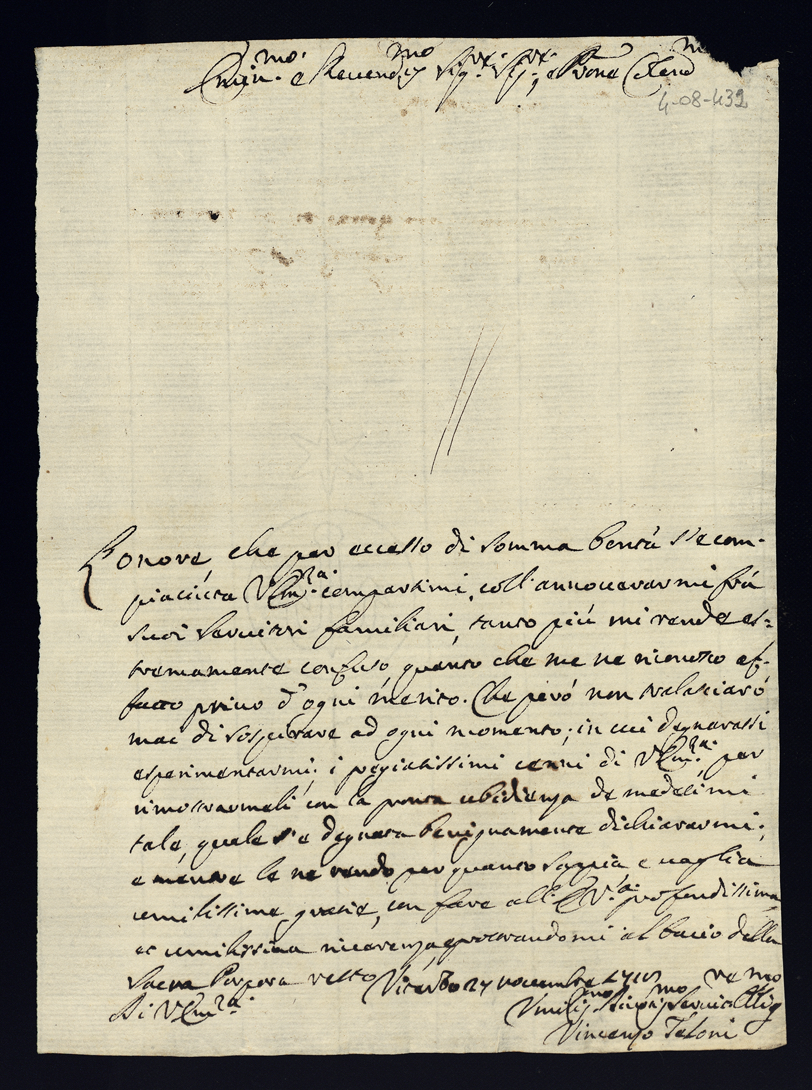 Emin.mo e Reverend.mo Sig.re Sig.re, e P.rone Colend.mo
4-08-432
L'onore, che per eccesso di somma bontà s'è com-
piaciuta V.Em.za compartirmi, coll'annoverarmi frà
suoi servitori familiari, tanto più mi rende es=
tremamente confuso, quanto che me ne riconosco af-
fatto privo d'ogni merito. Che però non tralasciarò
mai di sospirare ad ogni momento, in cui degnarassi
esperimentarmi, i pregiatissimi cenni di V.Em.za per
rimostrarmeli con la pronta ubidienza de medesimi
tale, quale s'è degnata benignamente dichiararmi;
e mentre le ne rendo per quanto sappia e vaglia
umilissime grazie, con fare all'E.V.a profondissima,
et umilissima riverenza, prostrandomi al bacio della
Sacra Porpora resto Viterbo 27 novembre
Di V.Em.za
Umiliss.mo Servit.e Oblig.mo
Vincenzo Teloni